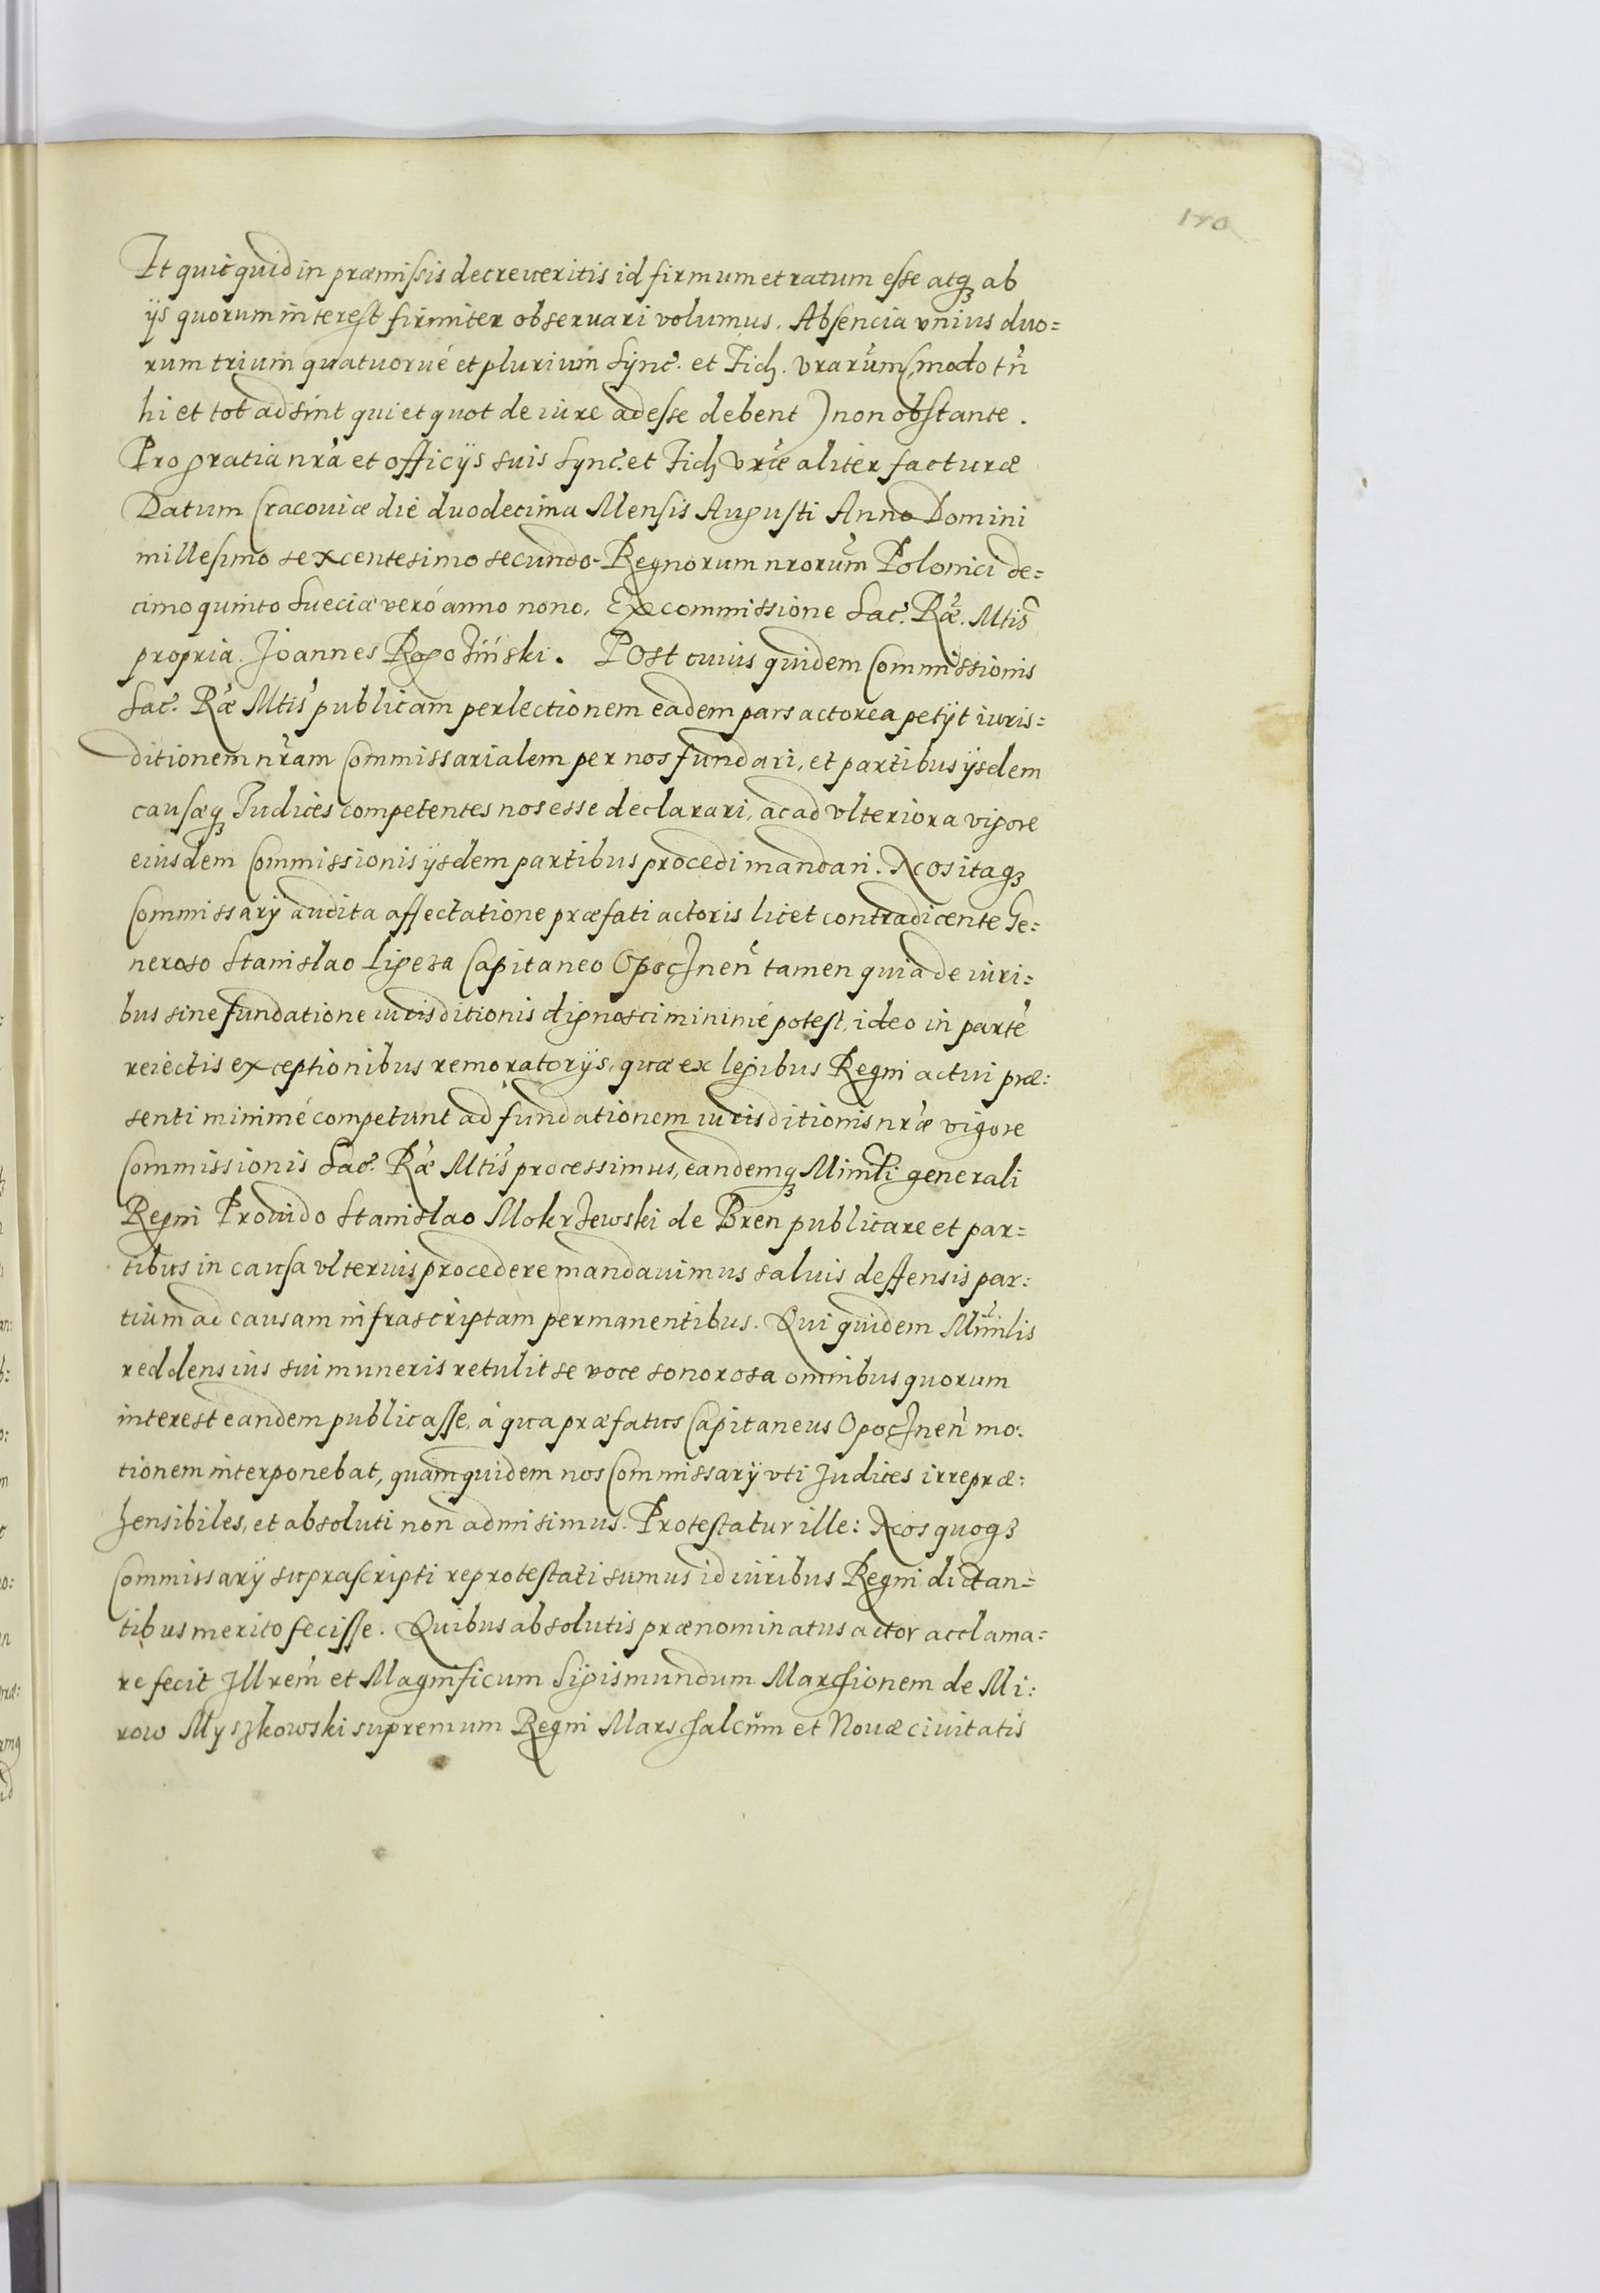 Et quicquid in præmissis decreveritis id firmum et ratum esse atqꝫ ab
ijs quorum interest firmiter observari volumus. Absencia vnius duo=
rum trium quatuorué et plurium Sync̃. et Fid. vrarũm (modo tñ
hi et tot adsint qui et quot de iure adesse debent) non obstante.
Pro gratia nrã et officijs suis Sync̃. et Fid. vrãe aliter facturæ
Datum Cracouiæ die duodecima Mensis Augusti Anno Domini
millesimo sexcentesimo secundo. Regnorum nrorũm Polonici de=
cimo quinto Sueciæ veró anno nono. Ex commissione Sac̃. Rãe. Mtis̃
propria. Joannes Rogoziński. POst cuius quidem Commissionis
Sac̃. Rãe Mtis̃ publicam perlectionem eadem pars actorea petijt iuris=
ditionem nrãm Commissarialem per nos fundari, et partibus ijsdem
causæqꝫ Judices competentes nos esse declarari, ac ad vlteriora vigore
eiusdem Commissionis ijsdem partibus procedi mandari. Nos itaqꝫ
Commissarij audita affectatione præfati actoris licet contradicente Ge=
neroso Stanislao Ligeza Capitaneo Opocznen̄ tamen quia de iuri=
bus sine fundatione iurisditionis dignosci minimé potest, ideo in parte
reiectis exceptionibus remoratorijs, quæ ex legibus Regni actui præ:
senti minimé competunt ad fundationem iurisditionis nrãe vigore
Commissionis Sac̃. Rãe Mtis̃ processimus, eandemqꝫ Minrli generali
Regni Prouido Stanislao Mokrzewski de Bren publicare et par=
tibus in causa vlterius procedere mandauimus saluis deffensis par:
tium ad causam infrascriptam permanentibus. Qui quidem Mĩnrlis
reddens ius sui muneris retulit se voce sonorosa omnibus quorum
interest eandem publicasse, à qua præfatus Capitaneus Opocznen̄ mo:
tionem interponebat, quam quidem nos Commissarij vti Judices irrepræ:
hensibiles, et absoluti non admisimus. Protestatur ille: Nos quoqꝫ
Commissarij suprascripti reprotestati sumus id iuribus Regni dictan=
tibus merito fecisse. Quibus absolutis prænominatus actor acclama:
re fecit Jllrem̃ et Magnificum Sigismundum Marchionem de Mi:
row Myszkowski supremum Regni Marschalcũm et Nouæ ciuitatis